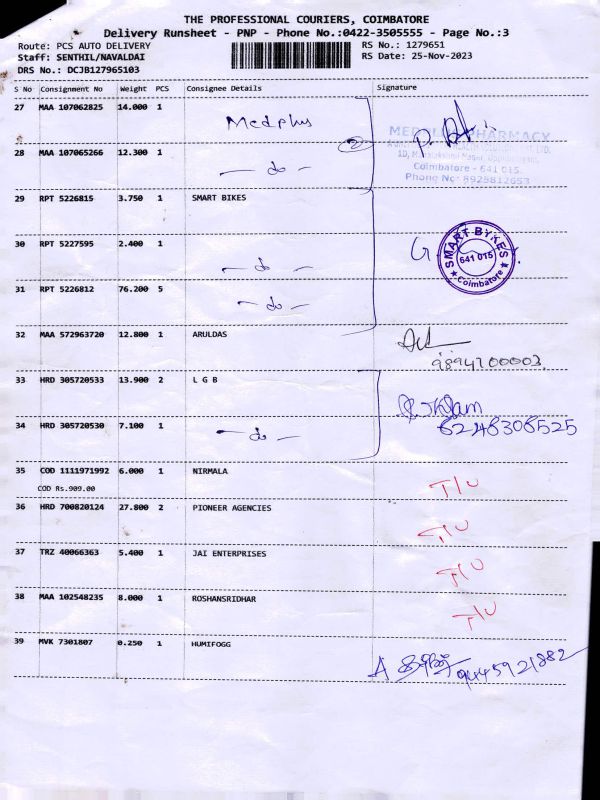 THE PROFESSIONAL COURIERS, COIMBATORE
Delivery Runsheet - PNP - Phone No.:0422-3505555 - Page No.:3
Route: PCS AUTO DELIVERY RS No.: 1279651
Staff: SENTHIL/NAVALDAI RS Date: 25-Nov-2023
DRS No.: DCJB127965103
S No Consignment No Weight PCS Consignee Details Signature
27 MAA 107062825 14.000 1 Medplus
MEDPLUS PHARMACY
28 MAA 107065266 12.300 1 - do - 2
Coimbatore - 641 015.
Phone No: 8925812653
29 RPT 5226815 3.750 1 SMART BIKES
30 RPT 5227595 2.400 1 - do - G
SMART BYKES
641 015
★ Coimbatore ★
31 RPT 5226812 76.200 5 - do -
32 MAA 572963720 12.800 1 ARULDAS
9894700003
33 HRD 305720533 13.900 2 L G B
34 HRD 305720530 7.100 1 - do - 6248306525
35 COD 1111971992 6.000 1 NIRMALA T/U
COD Rs.909.00
36 HRD 700820124 27.800 2 PIONEER AGENCIES T/U
37 TRZ 40066363 5.400 1 JAI ENTERPRISES T/U
38 MAA 102548235 8.000 1 ROSHANSRIDHAR T/U
39 MVK 7301807 0.250 1 HUMIFOGG
9445921882